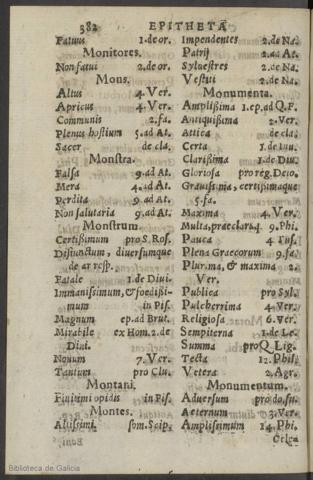 382 EPITHETA
Fatuus 1.de or.
Monitores.
Non fatui 2.de or.
Mons.
Altus 4.Ver.
Apricus 4.Ver.
Communis 2.fa.
Plenus hostium 5.ad At.
Sacer de cla.
Monstra.
Falsa 9.ad At.
Mera 4.ad At.
Perdita 9.ad At.
Non salutaria 9.ad At.
Monstrum.
Certissimum pro S.Ros.
Distunctum, diuersumque
de ar resp.
Fatale 1.de Diui.
Immanissimum, & foedissi-
mum in Pis.
Magnum ep.ad Brut.
Mirabile ex Hom.2.de
Diui.
Nouum 7.Ver.
Tantum pro Clu.
Montani.
Finitimi opidis in Pis.
Montes.
Altissimi som.Scip.
Impendentes 2.de Na.
Patrij 2.ad At.
Syluestres 2.de Na.
Vestiti 2.de Na.
Monumenta.
Amplissima 1.ep.ad Q.F.
Antiquissima 2.Ver.
Attica de cla.
Certa 1.de Inu.
Clarissima 1.de Diu.
Gloriosa pro reg.Deio.
Grauissima, certissimaque
5.fa.
Maxima 4.Ver.
Multa, praeclaraq. 9.Phi.
Pauca 4 Tus.
Plena Graecorum 9.fa.
Plurima, & maxima 2.
Ver.
Publica pro Syl.
Pulcherrima 4.Ver.
Religiosa 6.Ver.
Sempiterna 1.de Le.
Summa pro Q.Lig.
Tecta 12.Phil.
Vetera 2.Agr.
Monumentum.
Aduersum pro do.su.
Aeternum 3.Ver.
Amplissimum 14.Phi.
Celsa
Biblioteca de Galicia